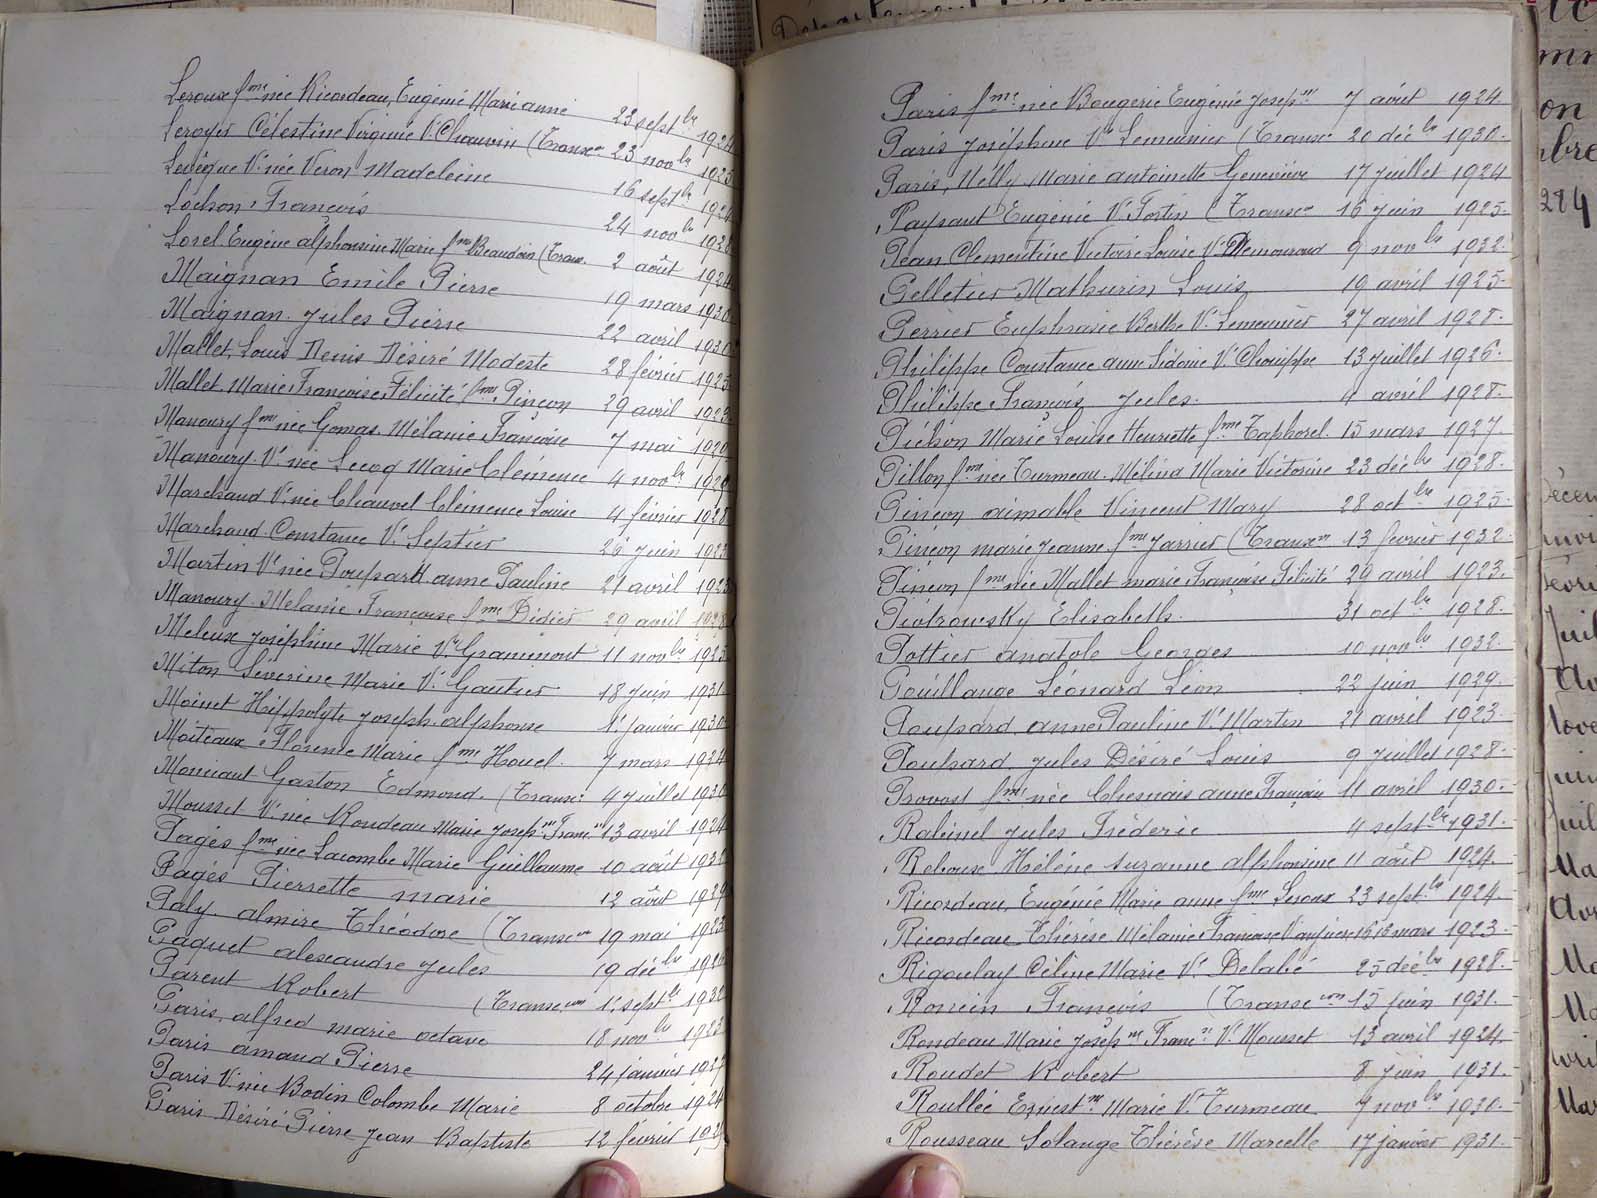 Leroux fme née Ricordeau, Eugénie Marie anne 23 septbre 1924
Leroyer Célestine Virginie Ve Chauvin (Transcon 23 novbre 1925
Levêque Ve née Veron Madeleine 16 septbre 1924
Lochon, François 24 novbre 1928
Lorel Eugène alphonsine Marie fme Beaudoin (Trans. 2 août 1924
Maignan Emile Pierre 19 mars 1930
Maignan Jules Pierre 22 avril 1930
Mallet, Louis Denis Désiré Modeste 28 février 1925
Mallet Marie Françoise Félicité fme Pinçon 29 avril 1923
Manoury fme née Gomas Mélanie Françoise 7 mai 1920
Manoury Ve née Lecoq Marie Clémence 4 novbre
Marchand Ve née Chauvel Clémence Louise 4 février 1928
Marchand Constance Ve Septier 26 juin 1923
Martin Ve née Poupard anne Pauline 21 avril 1923
Manoury Mélanie Françoise fme Didier 29 avril 1928
Meleux Joséphine Marie Vve Grammont 11 novbre 1923
Miton Séverine Marie Ve Gautier 18 juin 1931
Moinet Hippolyte Joseph alphonse 1r janvier 1930
Moiteaux Florence Marie fme Houel. 7 mars 1924
Moniant Gaston Edmond. (Transc: 4 juillet 1930
Mousset Ve née Rondeau Marie Josepne Franc se 13 avril 1924
Pagès fme née Lacombe Marie Guillaume 10 août 1932
Pagès Pierrette marie 12 août 1929
Paly almire Théodore (Transcon 19 mai 1923
Paquet alexandre Jules 19 décbre 1926
Parent Robert (Transcon 1r septbre 1932
Paris, alfred marie octave 18 novbre 1923
Paris amand Pierre 24 janvier 1927
Paris Ve née Bodin Colombe Marie 8 octobre 1924
Paris Désiré Pierre Jean Baptiste 12 février
Paris fme née Bougerie Eugénie Josepne 7 août 1924
Paris Joséphine Ve Lemeunier (Transcon 20 décbre 1930.
Paris, Nelly, Marie antoinette Geneviève 17 juillet 1924
Paysant Eugénie Ve Fortin (Transcon 16 juin 1925.
Pean Clementine Victoire Louise Ve 9 novbre 1932.
Pelletier Mathurin Louis 19 avril 1925.
Perrier Euphrasie Berthe Ve Lemeunier 27 avril 1928.
Philippe Constance anne Sidonie Ve Chouippe 13 juillet 1926.
Philippe François Jules. 4 avril 1928.
Pichon Marie Louise Henriette fme Taphorel. 15 mars 1927.
Pillon fme née Turmeau Mélina Marie Victorine 23 décbre 1928.
Pinçon aimable Vincent Mary 28 octbre 1925.
Pinçon marie Jeanne fme Jarrier (Transcon 13 février 1932.
Pinçon fme née Mallet marie Françoise Félicité 29 avril 1923.
Piotrowsky Elisabeth. 31 octbre 1928.
Pottier anatole Georges 10 novbre 1932.
Pouillange Léonard Léon 22 juin 1929.
Poupard anne Pauline Ve Martin 21 avril 1923.
Poulsard Jules Désiré Louis 9 juillet 1928.
Provost fme née Chesnais anne François 11 avril 1930.
Rabinel Jules Fréderic 4 septbre 1931.
Reboux Hélène Suzanne alphonsine 11 août 1924.
Ricordeau, Eugénie Marie anne fme Leroux 23 septbre 1924.
Ricordeau Thérèse Mélanie Françoise 16 mars 1923.
Rigoulay Céline Marie Ve Delabé 25 décbre 1928.
Roncin François (Transcon 15 juin 1931.
Rondeau Marie Josepne Franc se Ve Mousset 13 avril 1924.
Roudet Robert 8 juin 1931.
Roullée Ernestne Marie Ve Turmeau 7 novbre 1930.
Rousseau Solange Thérèse Marcelle 17 janvier 1931.
284